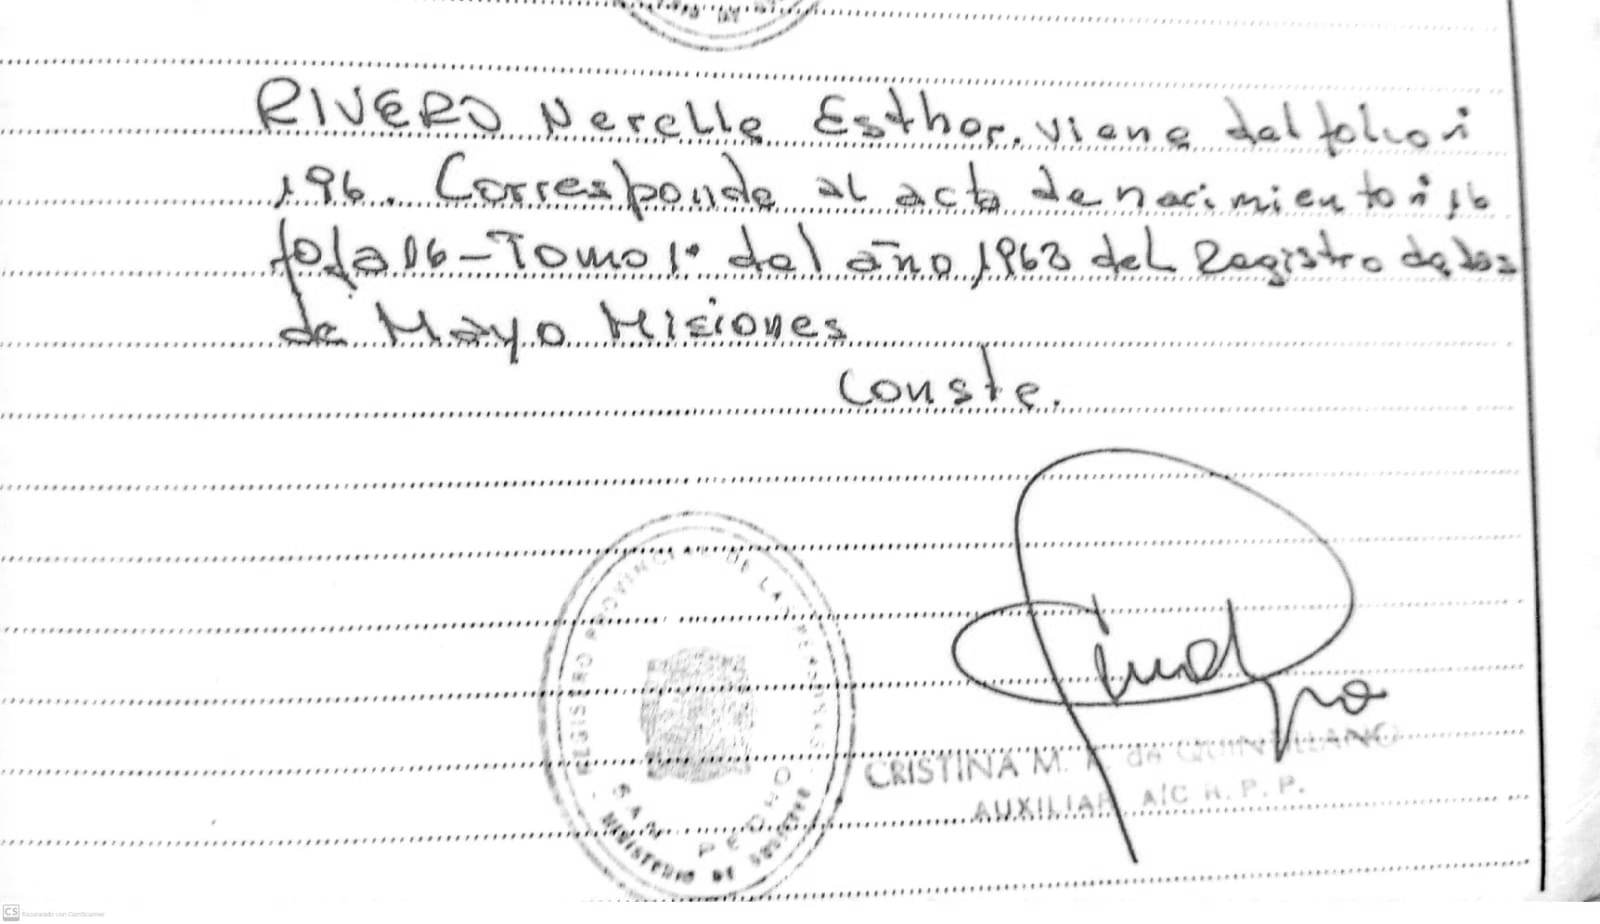 RIVERO Nerelle Esther. viene del folio nº
196. Corresponde al acta de nacimiento nº 16
foja 16 - Tomo 1º del año 1963 del Registro de dos
de Mayo Misiones
Conste.
REGISTRO PROVINCIAL DE LAS PERSONAS
SAN PEDRO
MINISTERIO DE GOBIERNO
CRISTINA M. de QUINTILLANO
AUXILIAR A/C R. P. P.
CS Escaneado con CamScanner